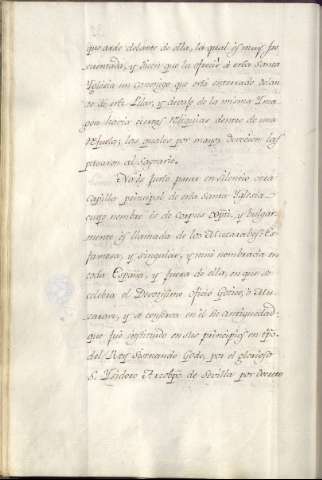 que arde delante de ella, la qual es muy fre
quentada, y dicen que la ofreció á esta Santa
Yglesia un Canonigo que está enterrado delan
te de este Pilar, y detras de la misma Ima
gen hacia ciertas Reliquias dentro de una
Rejuela; las quales por mayor decencia las
pasaron al Sagrario.
No es justo pasar en silencio otra
Capilla principal de esta Santa Yglesia
cuyo nombre es de Corpus Xpti, y vulgar
mente es llamada de los Muzarabes. Es
famosa, y singular, y muy nombrada en
toda España, y fuera de ella, en que se
celebra el Devotisimo oficio Gotico, ó Mu
zarave, y se conserva en él la antiguedad
que fué instituido en sus principios en tpo.
del Rey Sisenando Godo, por el glorioso
S. Ysidoro Arzobpo. de Sevilla por Decreto